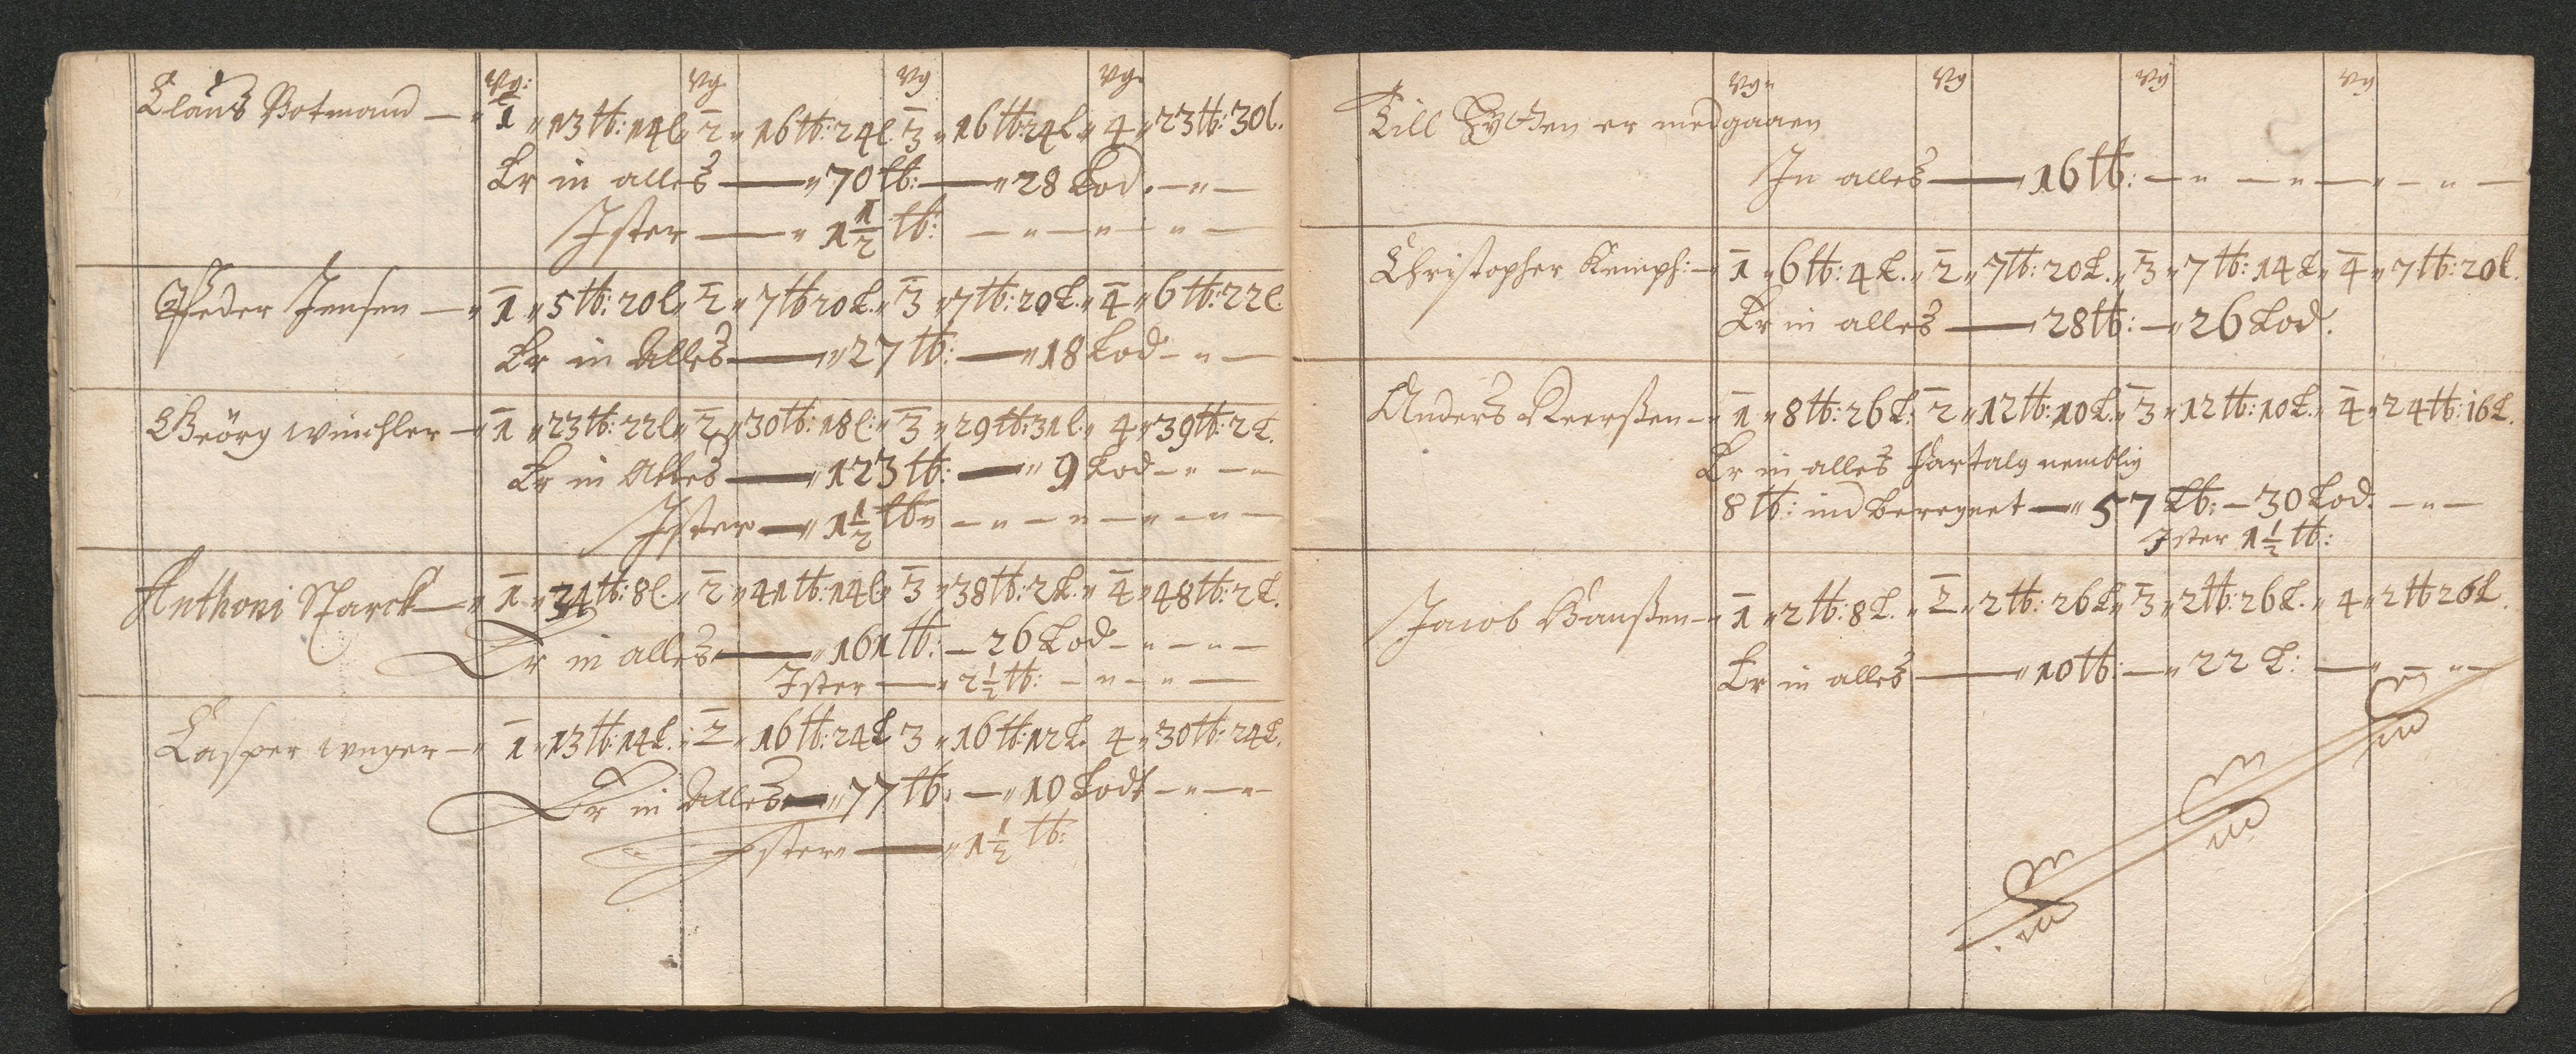 Vg: Vg Vg Vg.
Clauß Potmand — 1 " 13 tb: 14 l. 2 " 16 tb: 24 l. 3 " 16 tb: 24 L. " 4 " 23 tb: 30 l.
Er in alles — " 70 tb: — " 28 Lod. — " —
Ister — " 1 1/2 tb: — " — " — " —
Peder Jensen — " 1 " 5 tb: 20 l " 2 " 7 tb 20 L. " 3 " 7 tb: 20 L. " 4 " 6 tb: 22 l.
Er in Alles — " 27 tb: — " 18 Lod — " —
Geörg winchler — " 1 " 23 tb: 22 l " 2 " 30 tb: 18 l: " 3 " 29 tb: 31 l. " 4 " 39 tb: 2 L.
Er in Alles — " 123 tb: — " 9 Lod — " — "
Ister — " 1 1/2 tb " — " — " — " — " —
Anthoni Starck — " 1 " 34 tb: 8 l. " 2 " 41 tb: 14 l. " 3 " 38 tb: 2 L. " 4 " 48 tb: 2 L.
Er in alles — " 161 tb: — 26 Lod — " — " —
Ister — " 2 1/2 tb: — " — " —
Casper weger — " 1 " 13 tb: 14 L. " 2 " 16 tb: 24 L 3 " 16 tb: 12 L. 4 " 30 tb: 24 L.
Er in Alles — " 77 tb: — " 10 Lodt — " — "
Ister — " 1 1/2 tb:
Vg " Vg Vg Vg
Till er medgaaen
In alles — " 16 tb: — " — " — " — " —
Christopher Kemph: — " 1 " 6 tb: 4 L. " 2 " 7 tb: 20 L. " 3 " 7 tb: 14 L " 4 " 7 tb: 20 l.
Er in alles — " 28 tb: — " 26 Lod.
Anders — " 1 " 8 tb: 26 L. 2 " 12 tb: 10 L. " 3 " 12 tb: 10 L. " 4 " 24 tb: 16 L.
Er in alles nemblig
8 tb: indberegnet — " 57 tb: — 30 Lod. — " —
Ister 1 1/2 tb:
Jacob Hanßen — " 1 " 2 tb: 8 L. " 2 " 2 tb: 26 L " 3 " 2 tb: 26 L. " 4 " 2 tb 26 L.
Er in alles — " 10 tb: — " 22 L: — " — " —